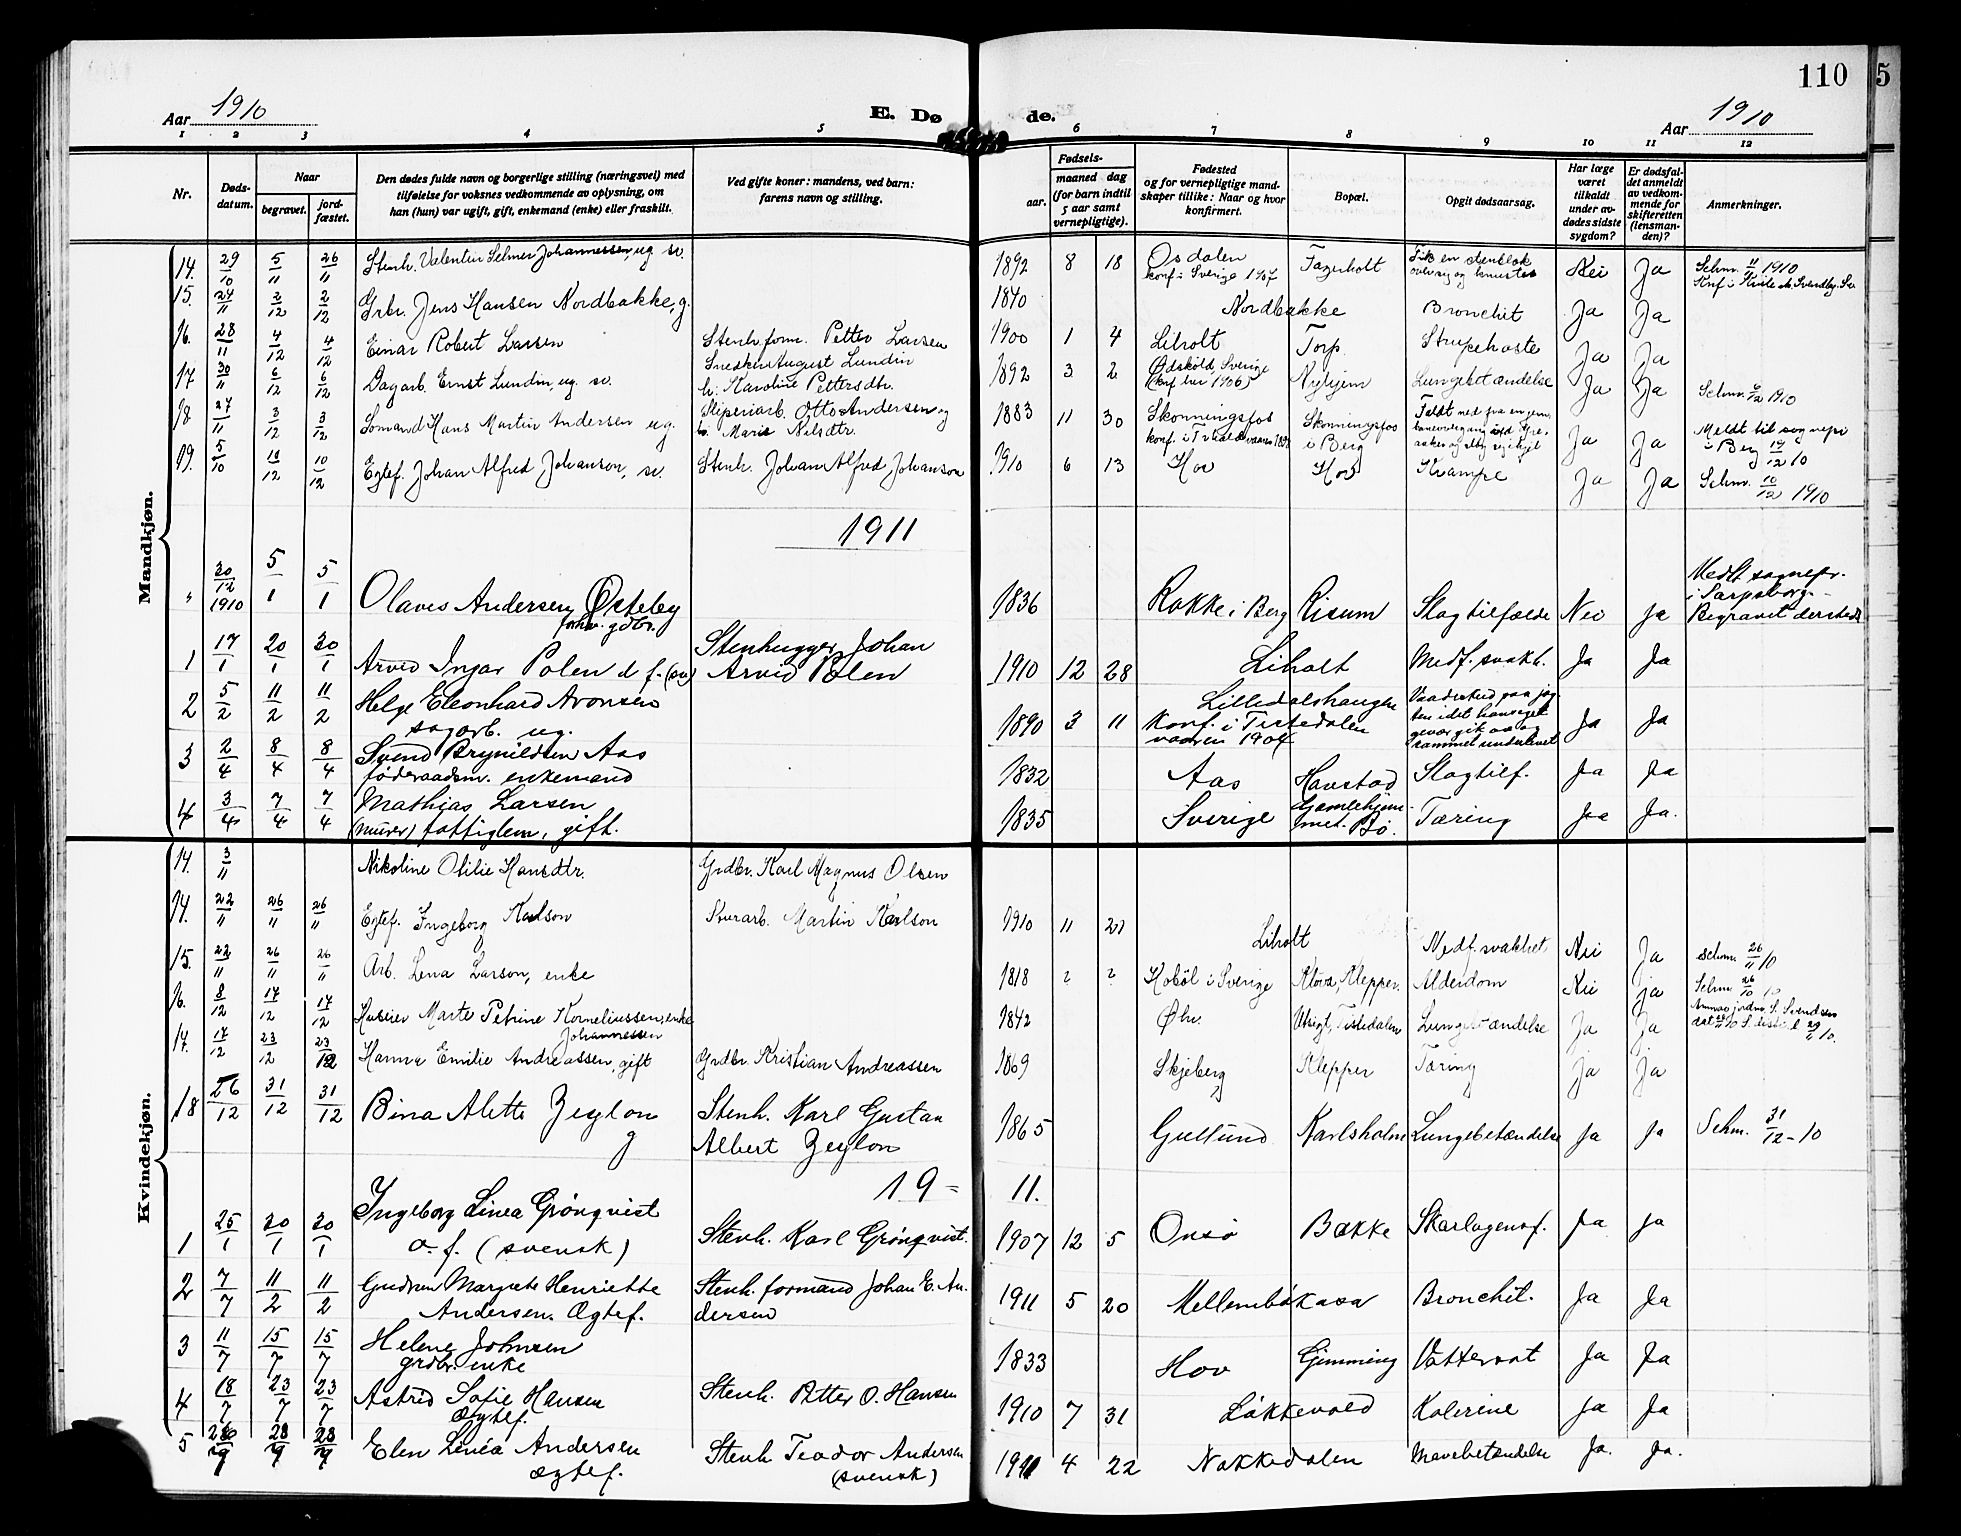 110 5
Aar 1910 E. Dø de. Aar 1910
1 2 3 4 5 6 7 8 9 10 11 12
Nr. Døds-datum. Naar begravet. jord-fæstet. Den dødes fulde navn og borgerlige stilling (næringsvei) med tilføielse for voksnes vedkommende av oplysning, om han (hun) var ugift, gift, enkemand (enke) eller fraskilt. Ved gifte koner: mandens, ved barn: farens navn og stilling. Fødsels- aar. maaned dag (for barn indtil 5 aar samt vernepligtige). Fødested og for vernepligtige mandskaper tillike: Naar og hvor konfirmert. Bopæl. Opgit dødsaarsag. Har læge været tilkaldt under avdødes sidste sygdom? Er dødsfaldet anmeldt av vedkommende for skifteretten (lensmanden)? Anmerkninger.
Mandkjøn.
14. 29/10 5/11 26/11 Stenh. Valentin Selmer Johannessen, ug. sv. 1892 8 18 Osdalen konf. i Sverige 1907 Fagerholt Fik en stenblok over sig og knustes Nei Ja Schm. 11/11 1910
15. 24/11 2/12 2/12 Grbr. Jens Hansen Nordbakke, g. 1840 Nordbakke Bronchit Ja Ja
16. 28/11 4/12 4/12 Einar Robert Larsen Stenh.form. Petter Larsen 1900 1 4 Liholt Torp Strupehoste Ja Ja
17 30/11 6/12 6/12 Dagarb. Ernst Lundin, ug. sv. Snedker August Lundin h: Karoline Pettersdtr. 1892 3 2 Ødsköld, Sverige (konf. her 1906) Nyhjem Lungebetændelse Ja Ja
18 27/11 3/12 3/12 Sømand Hans Martin Andersen ug. Sliperiarb. Otto Andersen og h. Marie Nilsdtr. 1883 11 30 Skonningsfos Skonningsfos i Berg Ja Ja Meldt til sognepr. i Berg 19/12 10
19. 5/10 10/12 10/12 Egtef. Johan Alfred Johanson, sv. Stenh. Johan Alfred Johanson 1910 6 13 Hov Hov Krampe Ja Ja Schm. 10/12 1910
1911
" 30/12 1910 5/1 5/1 Olaves Andersen Østeby forhv. gdbr. 1836 Rokke i Berg Risum Slagtilfælde Nei Ja Medlt sognepr. i Sarpsborg. - Begravet dersteds
1 17/1 20/1 30/1 Arvid Ingar Polen d f. (sv.) Stenhugger Johan Arvid Polen 1910 12 28 Liholt Medf. svakh. Ja Ja
2 5/2 11/2 11/2 Helge Eleonhard Aronsen sagarb. ug. 1890 3 11 Lilledalshaugen Konf. i Tistedalen vaaren 1904 Vaadeskud paa jagten idet hans eget gevær gik av og rammet underlivet Ja Ja
3 2/4 8/4 8/4 Svend Brynildsen Aas føderaadsm. enkemand 1832 Aas Havstad Slagtilf. Ja Ja
4 3/4 7/4 7/4 Mathias Larsen (murer) fattiglem, gift. 1835 Sverige Gamlehjemmet. Bø. Tæring Ja Ja.
Kvindekjøn.
14. 3/11 Nikoline Otilie Hansdtr. Grdbr. Karl Magnus Olsen
14. 22/11 26/11 26/11 Egtef. Ingeborg Karlson Sturarb. Martin Karlson 1910 11 21 Liholt Medf. svakhet Nei Ja Schm. 26/11 10
15. 22/11 26/11 26/11 Arb. Lena Larson, enke 1818 ? ? Kobøl i Sverige Klova, Klepper. Alderdom Nei ja Schm. 26/10 10
16. 8/12 17/12 17/12 Huseier Marte Petrine Korneliussen, enke 1842 Øhr. Utsigt, Tistedalen Lungebetændelse Ja Ja
17. 17/12 23/12 23/12 Hanna Emilie Andreassen, Johannessen gift Grdbr. Kristian Andreassen 1869 Skjeberg Klepper Tæring Ja Ja
18 26/12 31/12 31/12 Bina Alette Zeylon g Stenh. Karl Gustav Albert Zeylon 1865 Gullund Karlsholm Lungebetændelse Ja Ja Schm. 31/12-10
19 = 11.
1 25/1 30/1 30/1 Ingeborg Linea Grönqvist o. f. (svensk) Stenh. Karl Grönqvist. 1907 12 5 Onsø Bække Skarlagensf. Ja Ja
2 7/7 11/2 11/2 Gudrun Margrete Henriette Andersen. Ægtef. Stenh. formand Johan E. Andersen 1911 5 20 Mellembökasa Bronchit. Ja Ja
3 11/7 15/7 15/7 Helene Johnsen grdbr. enke 1833 Hov Gimming Vattersot Ja Ja
4 18/7 23/7 23/7 Astrid Sofie Hansen Ægtef. Stenh. Petter O. Hansen 1910 7 31 Løkkevold Kolerine Ja Ja
5 28/9 28/9 Elen Linéa Andersen ægtef. Stenh Teodor Andersen (svensk) 1911 4 22 Nakkedalen Mavebetændelse Ja. Ja.